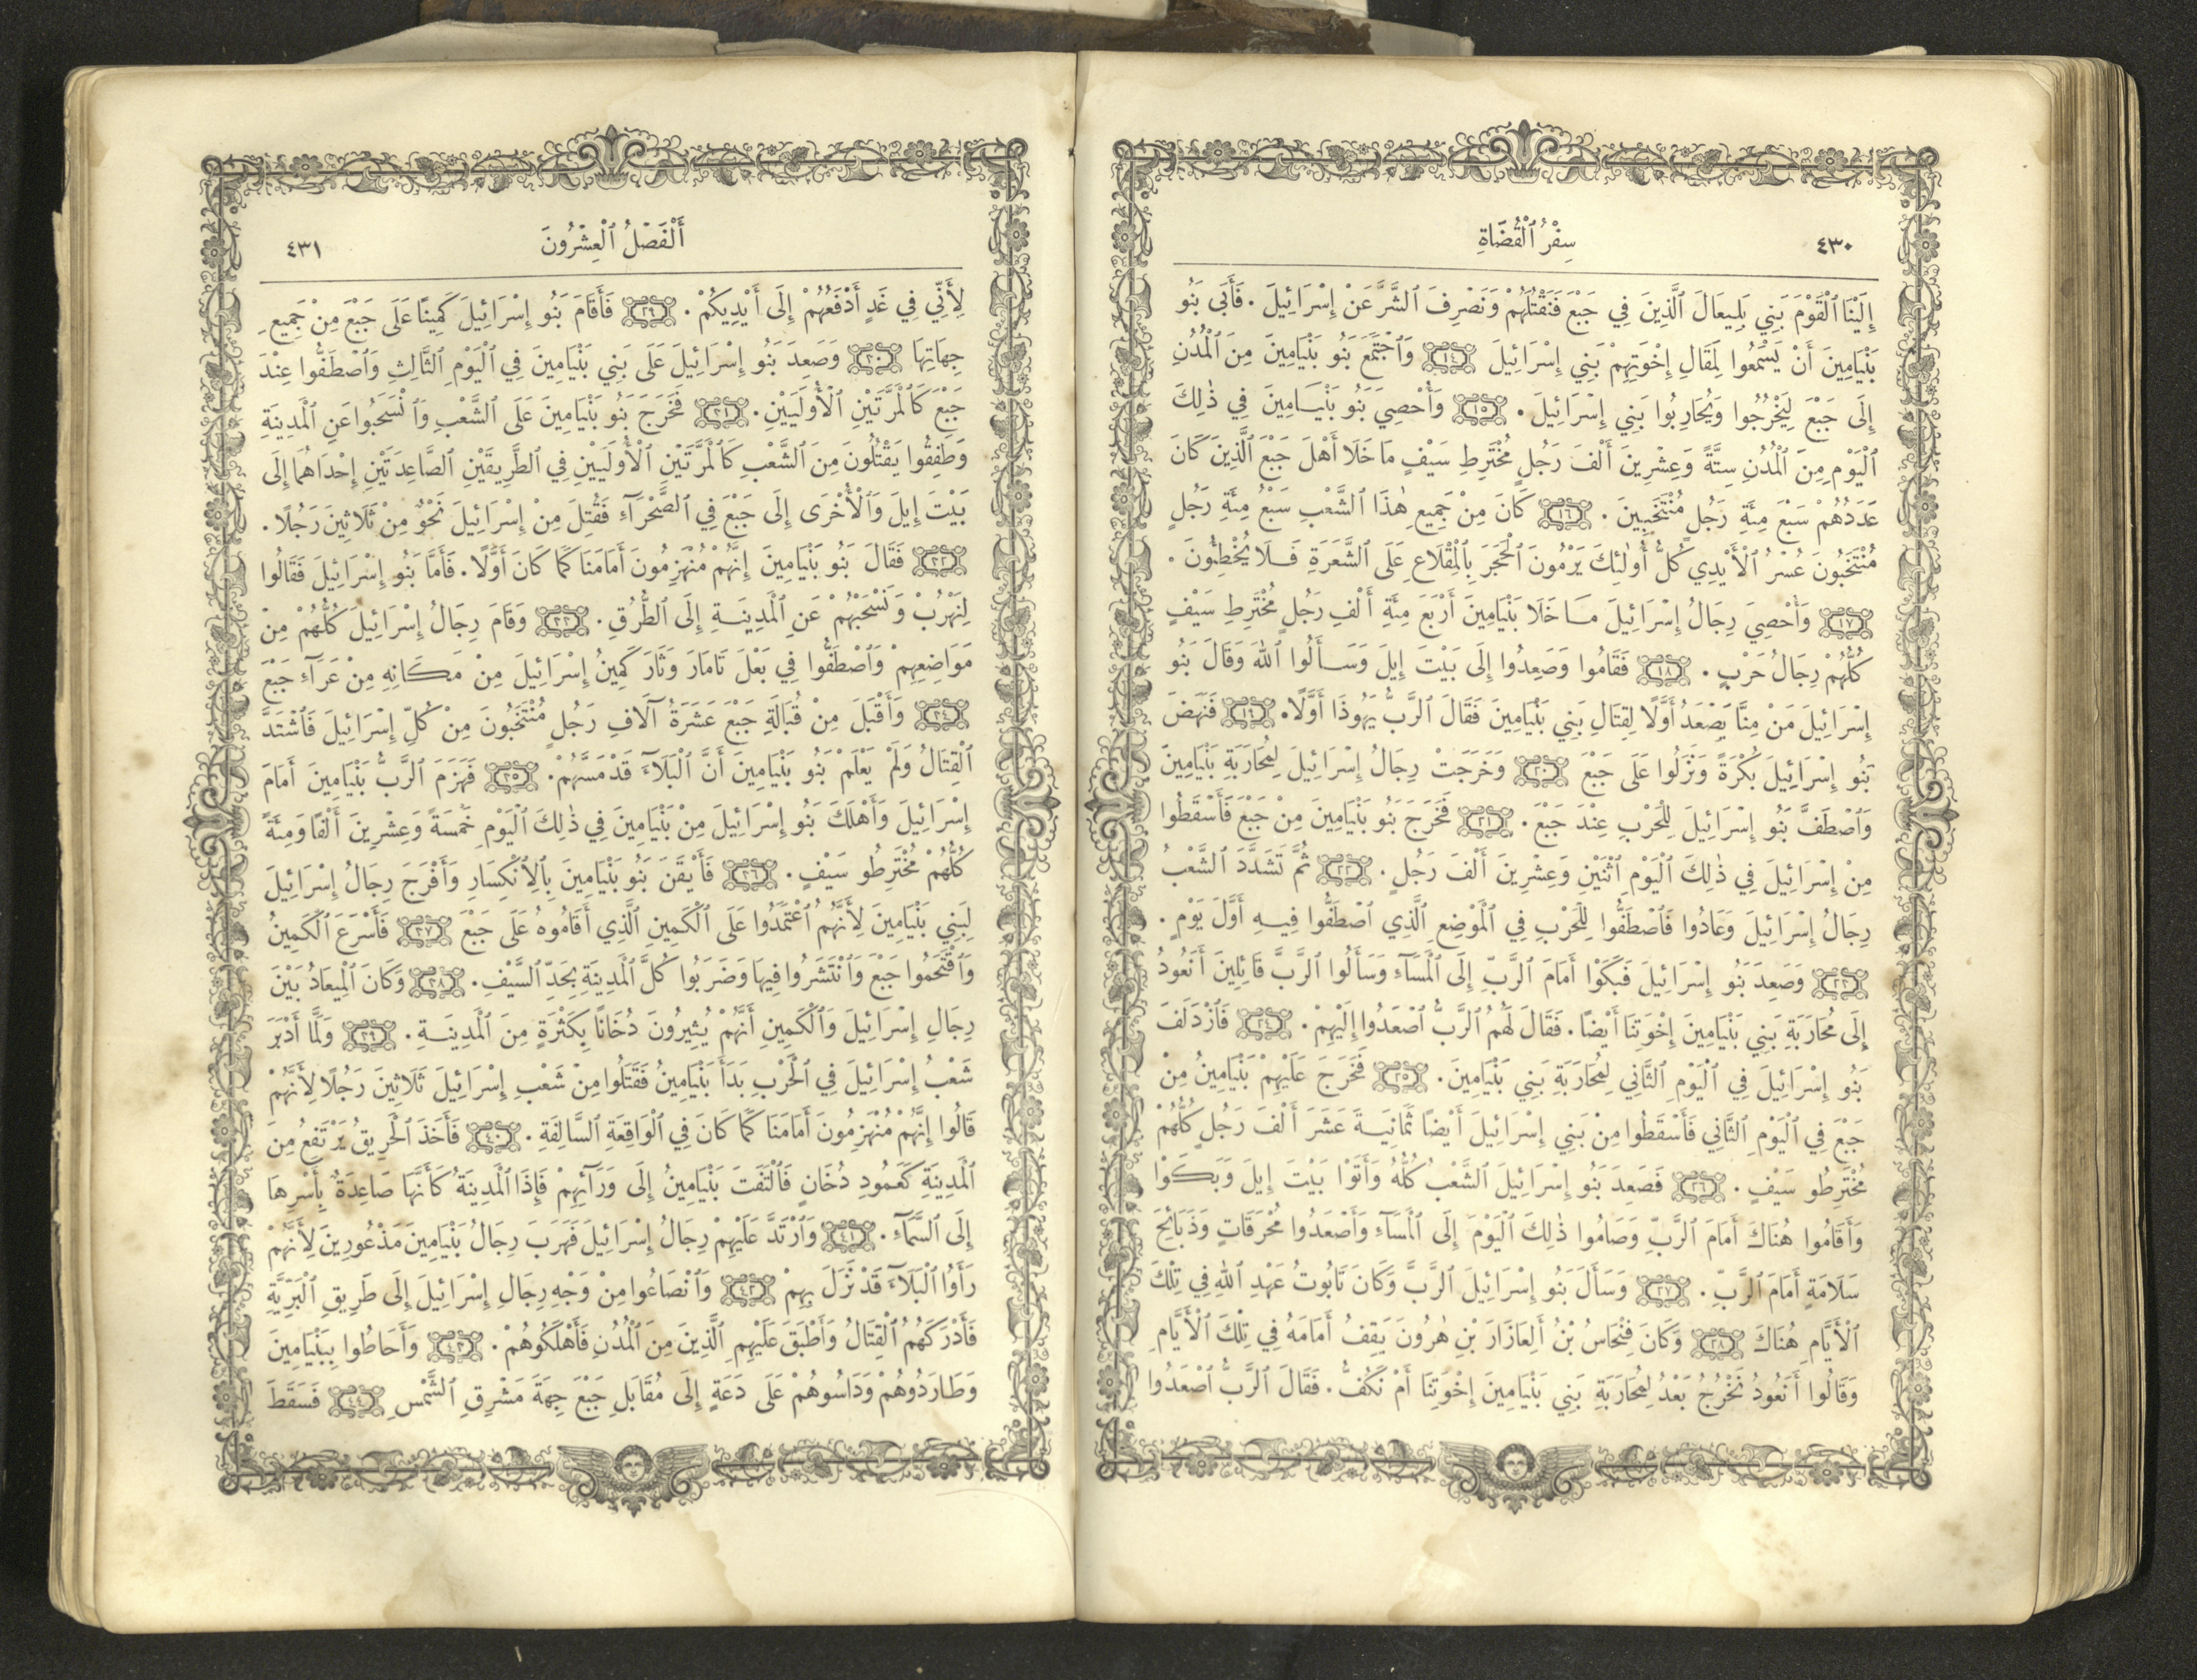 ٤٣٠
سِفْرُ ٱلْقُضَاةِ
إِلَيْنَا ٱلْقَوْمَ بَنِي بَلِيعَالَ ٱلَّذِينَ فِي جَبْعَ فَنَقْتُلَهُمْ وَنَصْرِفَ ٱلشَّرَّ عَنْ إِسْرَائِيلَ . فَأَبَى بَنُو
بَنْيَامِينَ أَنْ يَسْمَعُوا لِمَقَالِ إِخْوَتِهِمْ بَنِي إِسْرَائِيلَ ١٤ وَٱجْتَمَعَ بَنُو بَنْيَامِينَ مِنَ ٱلْمُدُنِ
إِلَى جَبْعَ لِيَخْرُجُوا وَيُحَارِبُوا بَنِي إِسْرَائِيلَ . ١٥ وَأُحْصِيَ بَنُو بَنْيَامِينَ فِي ذٰلِكَ
ٱلْيَوْمِ مِنَ ٱلْمُدُنِ سِتَّةً وَعِشْرِينَ أَلْفَ رَجُلٍ مُخْتَرِطِ سَيْفٍ مَا خَلَا أَهْلَ جَبْعَ ٱلَّذِينَ كَانَ
عَدَدُهُمْ سَبْعَ مِئَةِ رَجُلٍ مُنْتَخَبِينَ . ١٦ كَانَ مِنْ جَمِيعِ هٰذَا ٱلشَّعْبِ سَبْعُ مِئَةِ رَجُلٍ
مُنْتَخَبُونَ عُسْرُ ٱلْأَيْدِي كُلُّ أُولٰئِكَ يَرْمُونَ ٱلْحَجَرَ بِٱلْمِقْلَاعِ عَلَى ٱلشَّعَرَةِ فَلَا يُخْطِئُونَ .
١٧ وَأُحْصِيَ رِجَالُ إِسْرَائِيلَ مَا خَلَا بَنْيَامِينَ أَرْبَعَ مِئَةِ أَلْفِ رَجُلٍ مُخْتَرِطِ سَيْفٍ
كُلُّهُمْ رِجَالُ حَرْبٍ . ١٨ فَقَامُوا وَصَعِدُوا إِلَى بَيْتَ إِيلَ وَسَأَلُوا ٱللهَ وَقَالَ بَنُو
إِسْرَائِيلَ مَنْ مِنَّا يَصْعَدُ أَوَّلًا لِقِتَالِ بَنِي بَنْيَامِينَ فَقَالَ ٱلرَّبُّ يَهُوذَا أَوَّلًا. ١٩ فَنَهَضَ
بَنُو إِسْرَائِيلَ بُكْرَةً وَنَزَلُوا عَلَى جَبْعَ ٢٠ وَخَرَجَتْ رِجَالُ إِسْرَائِيلَ لِمُحَارَبَةِ بَنْيَامِينَ
وَٱصْطَفَّ بَنُو إِسْرَائِيلَ لِلْحَرْبِ عِنْدَ جَبْعَ . ٢١ فَخَرَجَ بَنُو بَنْيَامِينَ مِنْ جَبْعَ فَأَسْقَطُوا
مِنْ إِسْرَائِيلَ فِي ذٰلِكَ ٱلْيَوْمِ ٱثْنَيْنِ وَعِشْرِينَ أَلْفَ رَجُلٍ . ٢٢ ثُمَّ تَشَدَّدَ ٱلشَّعْبُ
رِجَالُ إِسْرَائِيلَ وَعَادُوا فَٱصْطَفُّوا لِلْحَرْبِ فِي ٱلْمَوْضِعِ ٱلَّذِي ٱصْطَفُّوا فِيهِ أَوَّلَ يَوْمٍ .
٢٣ وَصَعِدَ بَنُو إِسْرَائِيلَ فَبَكَوْا أَمَامَ ٱلرَّبِّ إِلَى ٱلْمَسَآءِ وَسَأَلُوا ٱلرَّبَّ قَائِلِينَ أَنَعُودُ
إِلَى مُحَارَبَةِ بَنِي بَنْيَامِينَ إِخْوَتِنَا أَيْضًا . فَقَالَ لَهُمُ ٱلرَّبُّ ٱصْعَدُوا إِلَيْهِمْ . ٢٤ فَٱزْدَلَفَ
بَنُو إِسْرَائِيلَ فِي ٱلْيَوْمِ ٱلثَّانِي لِمُحَارَبَةِ بَنِي بَنْيَامِينَ . ٢٥ فَخَرَجَ عَلَيْهِمْ بَنْيَامِينُ مِنْ
جَبْعَ فِي ٱلْيَوْمِ ٱلثَّانِي فَأَسْقَطُوا مِنْ بَنِي إِسْرَائِيلَ أَيْضًا ثَمَانِيَةَ عَشَرَ أَلْفَ رَجُلٍ كُلُّهُمْ
مُخْتَرِطُو سَيْفٍ . ٢٦ فَصَعِدَ بَنُو إِسْرَائِيلَ ٱلشَّعْبُ كُلُّهُ وَأَتَوْا بَيْتَ إِيلَ وَبَكَوْا
وَأَقَامُوا هُنَاكَ أَمَامَ ٱلرَّبِّ وَصَامُوا ذٰلِكَ ٱلْيَوْمَ إِلَى ٱلْمَسَآءِ وَأَصْعَدُوا مُحْرَقَاتٍ وَذَبَائِحَ
سَلَامَةٍ أَمَامَ ٱلرَّبِّ . ٢٧ وَسَأَلَ بَنُو إِسْرَائِيلَ ٱلرَّبَّ وَكَانَ تَابُوتُ عَهْدِ ٱللهِ فِي تِلْكَ
ٱلْأَيَّامِ هُنَاكَ ٢٨ وَكَانَ فِنْحَاسُ بْنُ أَلِعَازَارَ بْنِ هٰرُونَ يَقِفُ أَمَامَهُ فِي تِلْكَ ٱلْأَيَّامِ
وَقَالُوا أَنَعُودُ نَخْرُجُ بَعْدُ لِمُحَارَبَةِ بَنِي بَنْيَامِينَ إِخْوَتِنَا أَمْ نَكُفُّ . فَقَالَ ٱلرَّبُّ ٱصْعَدُوا
أَلْفَصْلُ ٱلْعِشْرُونَ
٤٣١
لِأَنِّي فِي غَدٍ أَدْفَعُهُمْ إِلَى أَيْدِيكُمْ . ٢٩ فَأَقَامَ بَنُو إِسْرَائِيلَ كَمِينًا عَلَى جَبْعَ مِنْ جَمِيعِ
جِهَاتِهَا ٣٠ وَصَعِدَ بَنُو إِسْرَائِيلَ عَلَى بَنِي بَنْيَامِينَ فِي ٱلْيَوْمِ ٱلثَّالِثِ وَٱصْطَفُّوا عِنْدَ
جَبْعَ كَٱلْمَرَّتَيْنِ ٱلْأُولَيَيْنِ. ٣١ فَخَرَجَ بَنُو بَنْيَامِينَ عَلَى ٱلشَّعْبِ وَٱنْسَحَبُوا عَنِ ٱلْمَدِينَةِ
وَطَفِقُوا يَقْتُلُونَ مِنَ ٱلشَّعْبِ كَٱلْمَرَّتَيْنِ ٱلْأُولَيَيْنِ فِي ٱلطَّرِيقَيْنِ ٱلصَّاعِدَتَيْنِ إِحْدَاهُمَا إِلَى
بَيْتَ إِيلَ وَٱلْأُخْرَى إِلَى جَبْعَ فِي ٱلصَّحْرَآءِ فَقُتِلَ مِنْ إِسْرَائِيلَ نَحْوٌ مِنْ ثَلَاثِينَ رَجُلًا .
٣٢ فَقَالَ بَنُو بَنْيَامِينَ إِنَّهُمْ مُنْهَزِمُونَ أَمَامَنَا كَمَا كَانَ أَوَّلًا . فَأَمَّا بَنُو إِسْرَائِيلَ فَقَالُوا
لِنَهْرُبْ وَنَسْحَبْهُمْ عَنِ ٱلْمَدِينَةِ إِلَى ٱلطُّرُقِ . ٣٣ وَقَامَ رِجَالُ إِسْرَائِيلَ كُلُّهُمْ مِنْ
مَوَاضِعِهِمْ وَٱصْطَفُّوا فِي بَعْلَ تَامَارَ وَثَارَ كَمِينُ إِسْرَائِيلَ مِنْ مَكَانِهِ مِنْ عَرَآءِ جَبْعَ
٣٤ وَأَقْبَلَ مِنْ قُبَالَةِ جَبْعَ عَشَرَةُ آلَافِ رَجُلٍ مُنْتَخَبُونَ مِنْ كُلِّ إِسْرَائِيلَ فَٱشْتَدَّ
ٱلْقِتَالُ وَلَمْ يَعْلَمْ بَنُو بَنْيَامِينَ أَنَّ ٱلْبَلَآءَ قَدْ مَسَّهُمْ . ٣٥ فَهَزَمَ ٱلرَّبُّ بَنْيَامِينَ أَمَامَ
إِسْرَائِيلَ وَأَهْلَكَ بَنُو إِسْرَائِيلَ مِنْ بَنْيَامِينَ فِي ذٰلِكَ ٱلْيَوْمِ خَمْسَةً وَعِشْرِينَ أَلْفًا وَمِئَةً
كُلُّهُمْ مُخْتَرِطُو سَيْفٍ . ٣٦ فَأَيْقَنَ بَنُو بَنْيَامِينَ بِٱلِٱنْكِسَارِ وَأَفْرَجَ رِجَالُ إِسْرَائِيلَ
لِبَنِي بَنْيَامِينَ لِأَنَّهُمُ ٱعْتَمَدُوا عَلَى ٱلْكَمِينِ ٱلَّذِي أَقَامُوهُ عَلَى جَبْعَ ٣٧ فَأَسْرَعَ ٱلْكَمِينُ
وَٱقْتَحَمُوا جَبْعَ وَٱنْتَشَرُوا فِيهَا وَضَرَبُوا كُلَّ ٱلْمَدِينَةِ بِحَدِّ ٱلسَّيْفِ . ٣٨ وَكَانَ ٱلْمِيعَادُ بَيْنَ
رِجَالِ إِسْرَائِيلَ وَٱلْكَمِينِ أَنَّهُمْ يُثِيرُونَ دُخَانًا بِكَثْرَةٍ مِنَ ٱلْمَدِينَةِ . ٣٩ وَلَمَّا أَدْبَرَ
شَعْبُ إِسْرَائِيلَ فِي ٱلْحَرْبِ بَدَأَ بَنْيَامِينُ فَقَتَلُوا مِنْ شَعْبِ إِسْرَائِيلَ ثَلَاثِينَ رَجُلًا لِأَنَّهُمْ
قَالُوا إِنَّهُمْ مُنْهَزِمُونَ أَمَامَنَا كَمَا كَانَ فِي ٱلْوَاقِعَةِ ٱلسَّالِفَةِ . ٤٠ فَأَخَذَ ٱلْحَرِيقُ يَرْتَفِعُ مِنَ
ٱلْمَدِينَةِ كَعَمُودِ دُخَانٍ فَٱلْتَفَتَ بَنْيَامِينُ إِلَى وَرَآئِهِمْ فَإِذَا ٱلْمَدِينَةُ كَأَنَّهَا صَاعِدَةٌ بِأَسْرِهَا
إِلَى ٱلسَّمَآءِ . ٤١ وَٱرْتَدَّ عَلَيْهِمْ رِجَالُ إِسْرَائِيلَ فَهَرَبَ رِجَالُ بَنْيَامِينَ مَذْعُورِينَ لِأَنَّهُمْ
رَأَوُا ٱلْبَلَآءَ قَدْ نَزَلَ بِهِمْ ٤٢ وَٱنْصَاعُوا مِنْ وَجْهِ رِجَالِ إِسْرَائِيلَ إِلَى طَرِيقِ ٱلْبَرِّيَّةِ
فَأَدْرَكَهُمُ ٱلْقِتَالُ وَأَطْبَقَ عَلَيْهِمِ ٱلَّذِينَ مِنَ ٱلْمُدُنِ فَأَهْلَكُوهُمْ . ٤٣ وَأَحَاطُوا بِبَنْيَامِينَ
وَطَارَدُوهُمْ وَدَاسُوهُمْ عَلَى دَعَةٍ إِلَى مُقَابَلِ جَبْعَ جِهَةَ مَشْرِقِ ٱلشَّمْسِ ٤٤ فَسَقَطَ